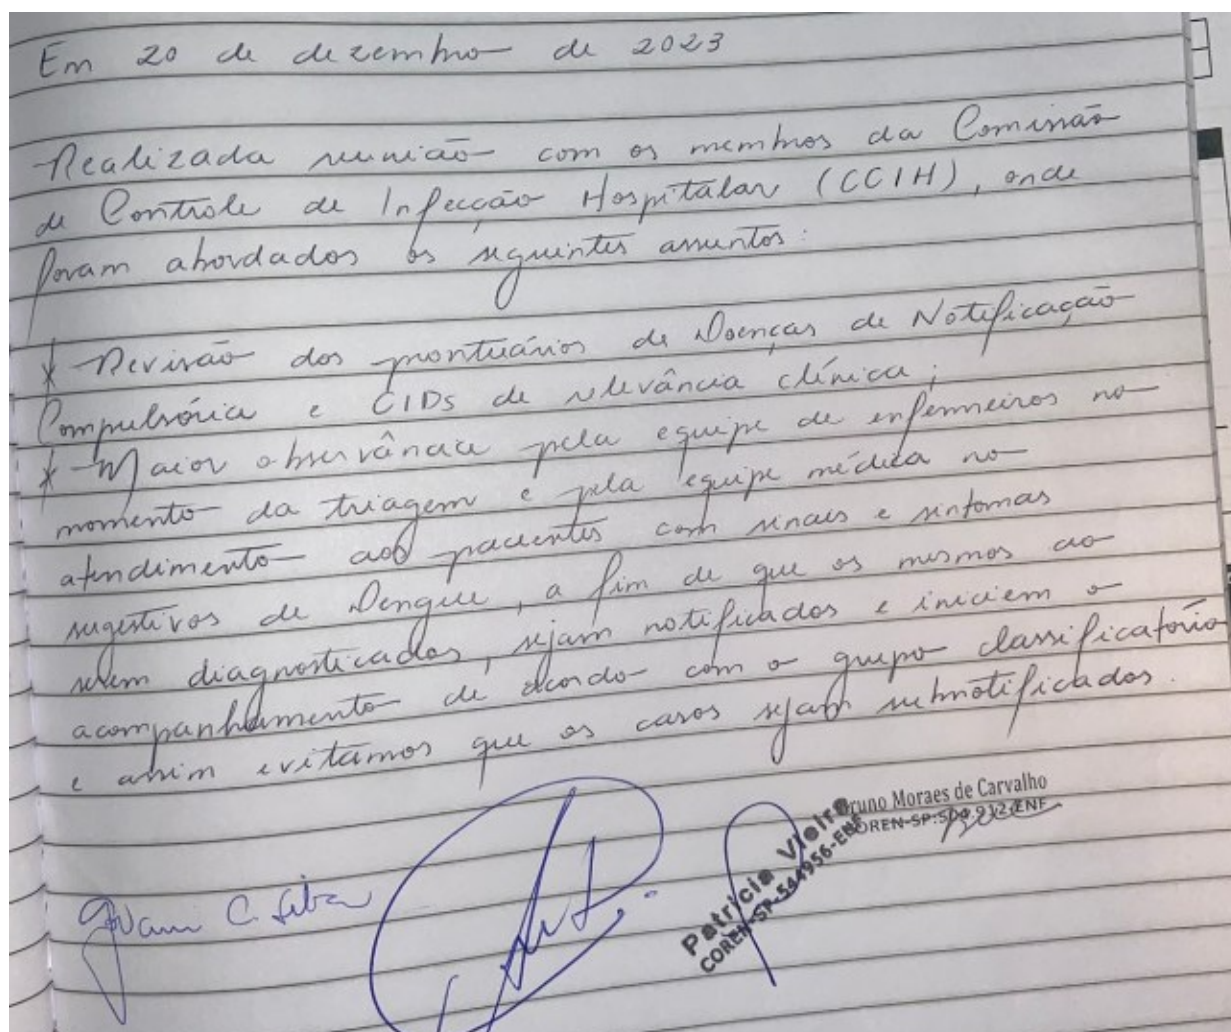 Em 20 de dezembro de 2023
Realizada reunião com os membros da Comissão
de Controle de Infecção Hospitalar (CCIH), onde
foram abordados os seguintes assuntos:
* Revisão dos prontuários de Doenças de Notificação
Compulsória e CIDs de relevância clínica;
* Maior observância pela equipe de enfermeiros no
momento da triagem e pela equipe médica no
atendimento aos pacientes com sinais e sintomas
sugestivos de Dengue, a fim de que os mesmos ao
serem diagnosticados, sejam notificados e iniciem o
acompanhamento de acordo com o grupo classificatório
e assim evitamos que os casos sejam subnotificados.
Bruno Moraes de Carvalho
COREN-SP
Patricia Vieira
COREN-SP-544956-ENF
C.